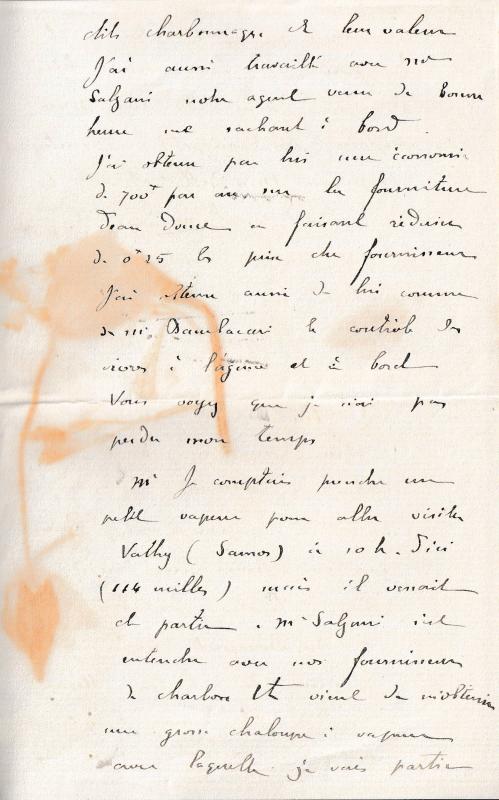 dits charbonnages et leur valeur
J'ai aussi travaillé avec mr
Salzani notre agent venu de bonne
heure me sachant à bord.
J'ai obtenu par lui une économie
de 700f par an sur la fourniture
d'eau douce en faisant réduire
de 0f25 le prix du fournisseur
J'ai obtenu aussi de lui comme
de mr. le contrôle des
vivres à l'agence et à bord
Vous voyez que je n'ai pas
perdu mon temps
Je comptais prendre un
petit vapeur pour aller visiter
Vathy (Samos) à 10 h. d'ici
(114 milles) mais il venait
de partir. Mr Salzani s'est
entendu avec nos fournisseurs
de charbon et vient de m'obtenir
une grosse chaloupe à vapeur
avec laquelle je vais partir